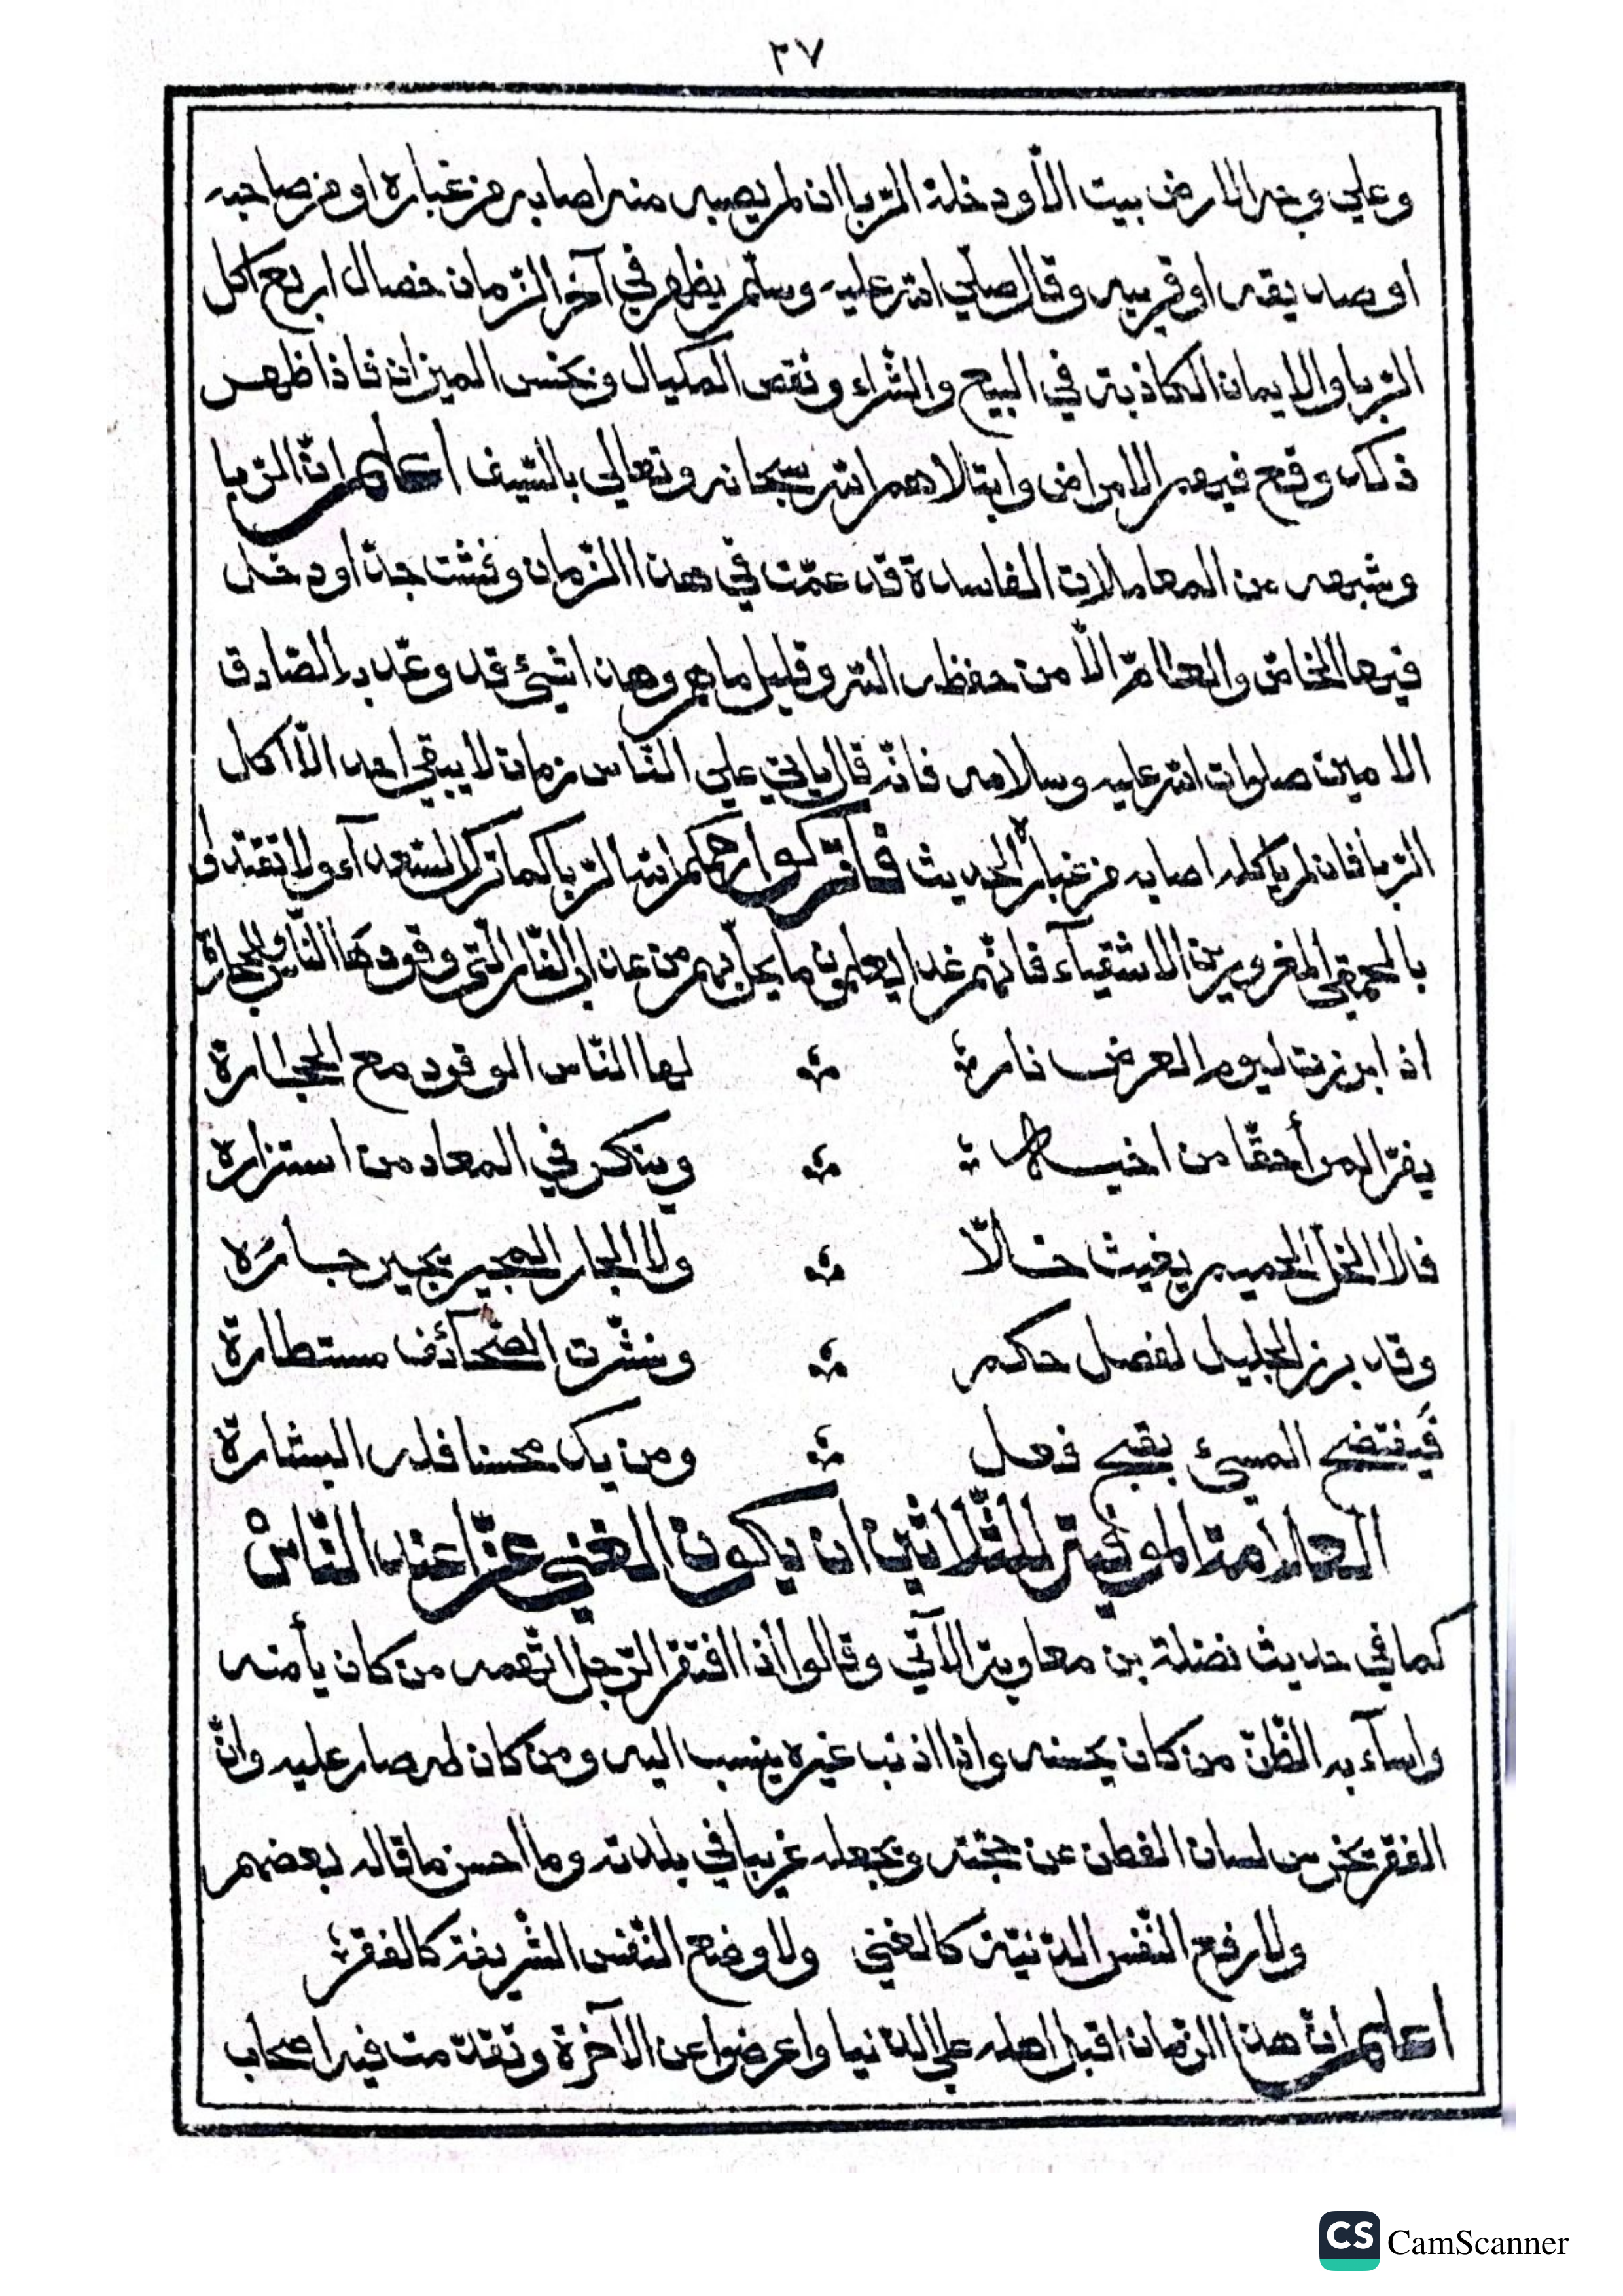 ٢٧
وعلي وجه الارض بيت الّا ودخله الرّبا ان لم يصبه منه اصابه من غباره او من صاحبه
او صديقه او قريبه وقال صلّي الله عليه وسلّم يظهر في آخر الزّمان خصال اربع اكل
الرّبا والايمان الكاذبة في البيع والشّراء ونقص المكيال وبخس الميزان فاذا ظهر
ذلك وقع فيهم الامراض وابتلاهم الله سبحانه وتعالي بالسّيف اعلم انّ الرّبا
وشبهه من المعاملات الفاسدة قد عمّت في هذا الزّمان وفشت جدّا ودخل
فيها الخاصّ والعامّ الّا من حفظه الله وقليل ما هم وهذا شيئ قد وعد به الصّادق
الامين صلوات الله عليه وسلامه فانّه قال ياتي علي النّاس زمان لا يبقي احد الّا اكل
الرّبا فان لم ياكله اصابه من غباره الحديث فاتركوا رحمكم الله الرّبا كما تركه السّعدآء ولا تقتدوا
بالحمقي المغرورين الاشقيآء فانّهم غدا يعلمون ما يحلّ بهم من عذاب النّار الّتي وقودها النّاس والحجارة
اذا برزت ليوم العرض نارة لها النّاس الوقود مع الحجارة
يفرّ المرأ حقّا من اخيه وينكر في المعاد من استزاره
فلا الخلّ الحميم يغيث خلّا ولا الجار المجير يجير جاره
وقد برز الجليل لفصل حكم ونشّرت الصّحائف مستطارة
فيفتضح المسيئ بقبح فعل ومن يك محسنا فله البشارة
العلامة الموفية للثّلاثين ان يكون الغني عزّا عند النّاس
كما في حديث نضلة بن معاوية الآتي وقالوا اذا افتقر الرّجل اتّهمه من كان يأمنه
واسآء به الظّنّ من كان يحسنه واذا اذنب غيره ينسب اليه ومن كان له صار عليه وانّ
الفقر يخرس لسان الفطن عن حجّته ويجعله غريبا في بلدته وما احسن ما قاله بعضهم
ولا رفع النّفس الدّنيّة كالغني ولا وضع النّفس الشّريفة كالفقر
اعلم انّ هذا الزّمان اقبل اهله علي الدّنيا واعرضوا عن الآخرة وتقدّمت فيه اصحاب
CS CamScanner